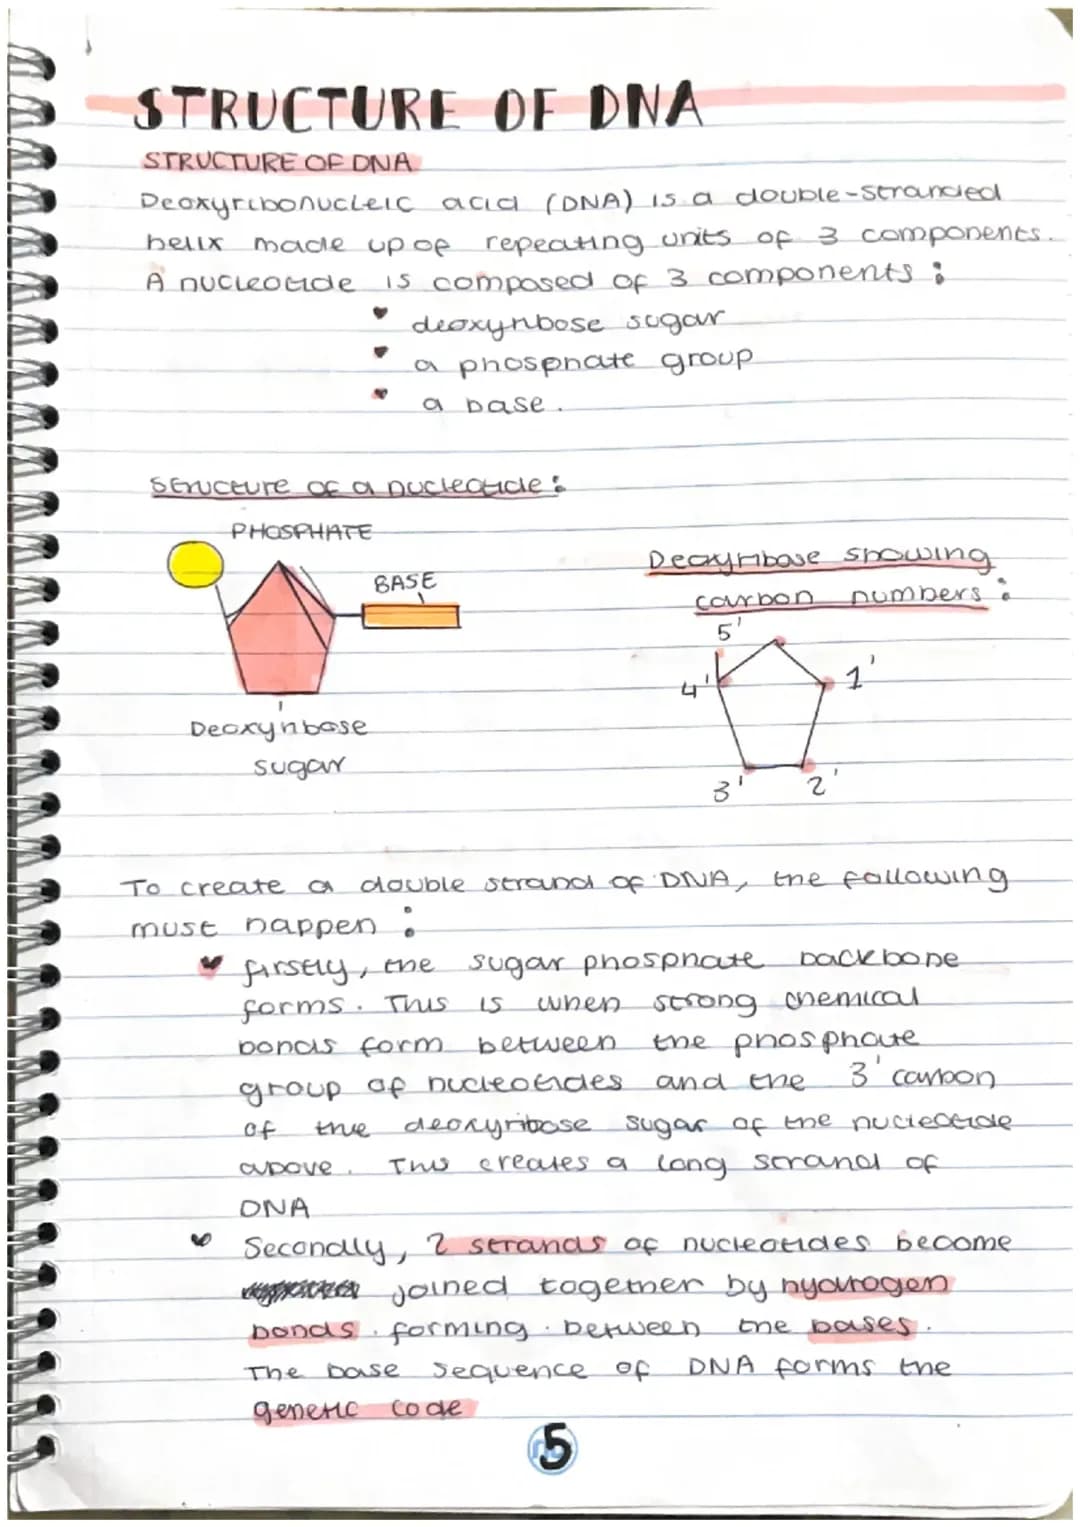 STRUCTURE OF DNA
STRUCTURE OF DNA
Deoxyribonucleic acid (DNA) is a double-stranded
helix made up of repeating units of 3 components.
A nucleotide is composed of 3 components :
deoxyribose sugar
a phosphate group
a base.
Structure of a nucleotide :
PHOSPHATE
BASE
Deoxyribose
sugar
Deoxyribose showing
carbon numbers :
5'
4'
1'
3'
2'
To create a double strand of DNA, the following
must happen :
firstly, the sugar phosphate backbone
forms. This is when strong chemical
bonds form between the phosphate
group of nucleotides and the 3' carbon
of the deoxyribose sugar of the nucleotide
above. This creates a long strand of
DNA
Secondly, 2 strands of nucleotides become
joined together by hydrogen
bonds . forming . between the bases.
The base sequence of DNA forms the
genetic code
5